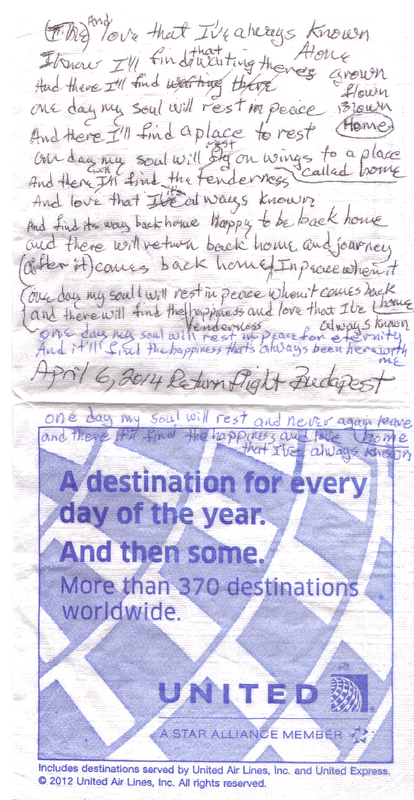 (The) And love that I've always known
I know I'll find that waiting there's Alone
And there I'll find waiting there grown
flown
one day my soul will rest in peace Brown
And there I'll find a place to rest Home
One day my soul will rest fly on wings to a place
called home
And there I'll find with the tenderness
And love that I've it's always known
And find its way back home Happy to be back home
and there will return back home and journey
(after it) comes back home In peace when it
(one day my soul will rest in peace when it comes back
home
and there will find the happiness and love that I've
Tenderness always known
one day my soul will rest in peace for eternity
And it'll find the happiness that's always been here with
me
April 6, 2014 Return Flight Budapest
one day my soul will rest and never again leave
home
and there it'll find the happiness and love
that I've always known
A destination for every
day of the year.
And then some.
More than 370 destinations
worldwide.
UNITED
A STAR ALLIANCE MEMBER
Includes destinations served by United Air Lines, Inc. and United Express.
© 2012 United Air Lines, Inc. All rights reserved.